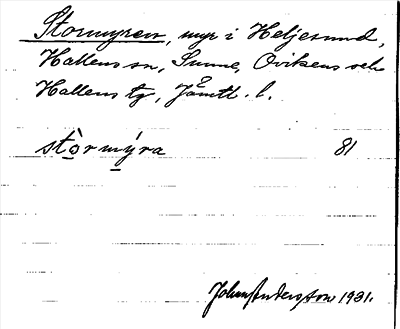 Stormyren, myr i Heljesund,
Hallens sn, Sunne, Ovikens och
Hallens tg, Jämtl. l.
stòrmýra 81
John Andersson 1931.